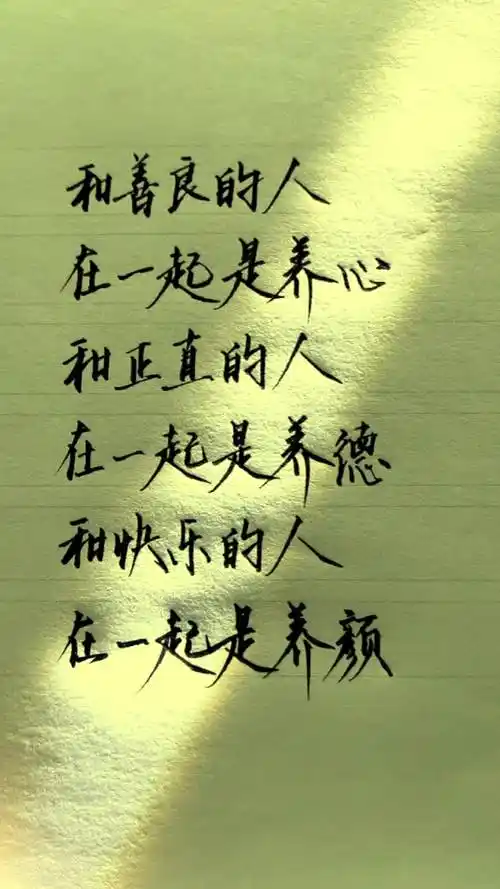 和善良的人
在一起是养心
和正直的人
在一起是养德
和快乐的人
在一起是养颜